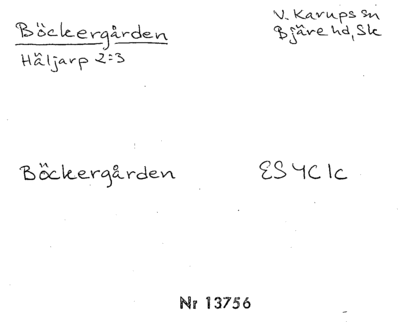 Böckergården
Häljarp 2:3
V. Karups sn
Bjäre hd, Sk
Böckergården
ES 4C 1c
Nr 13756